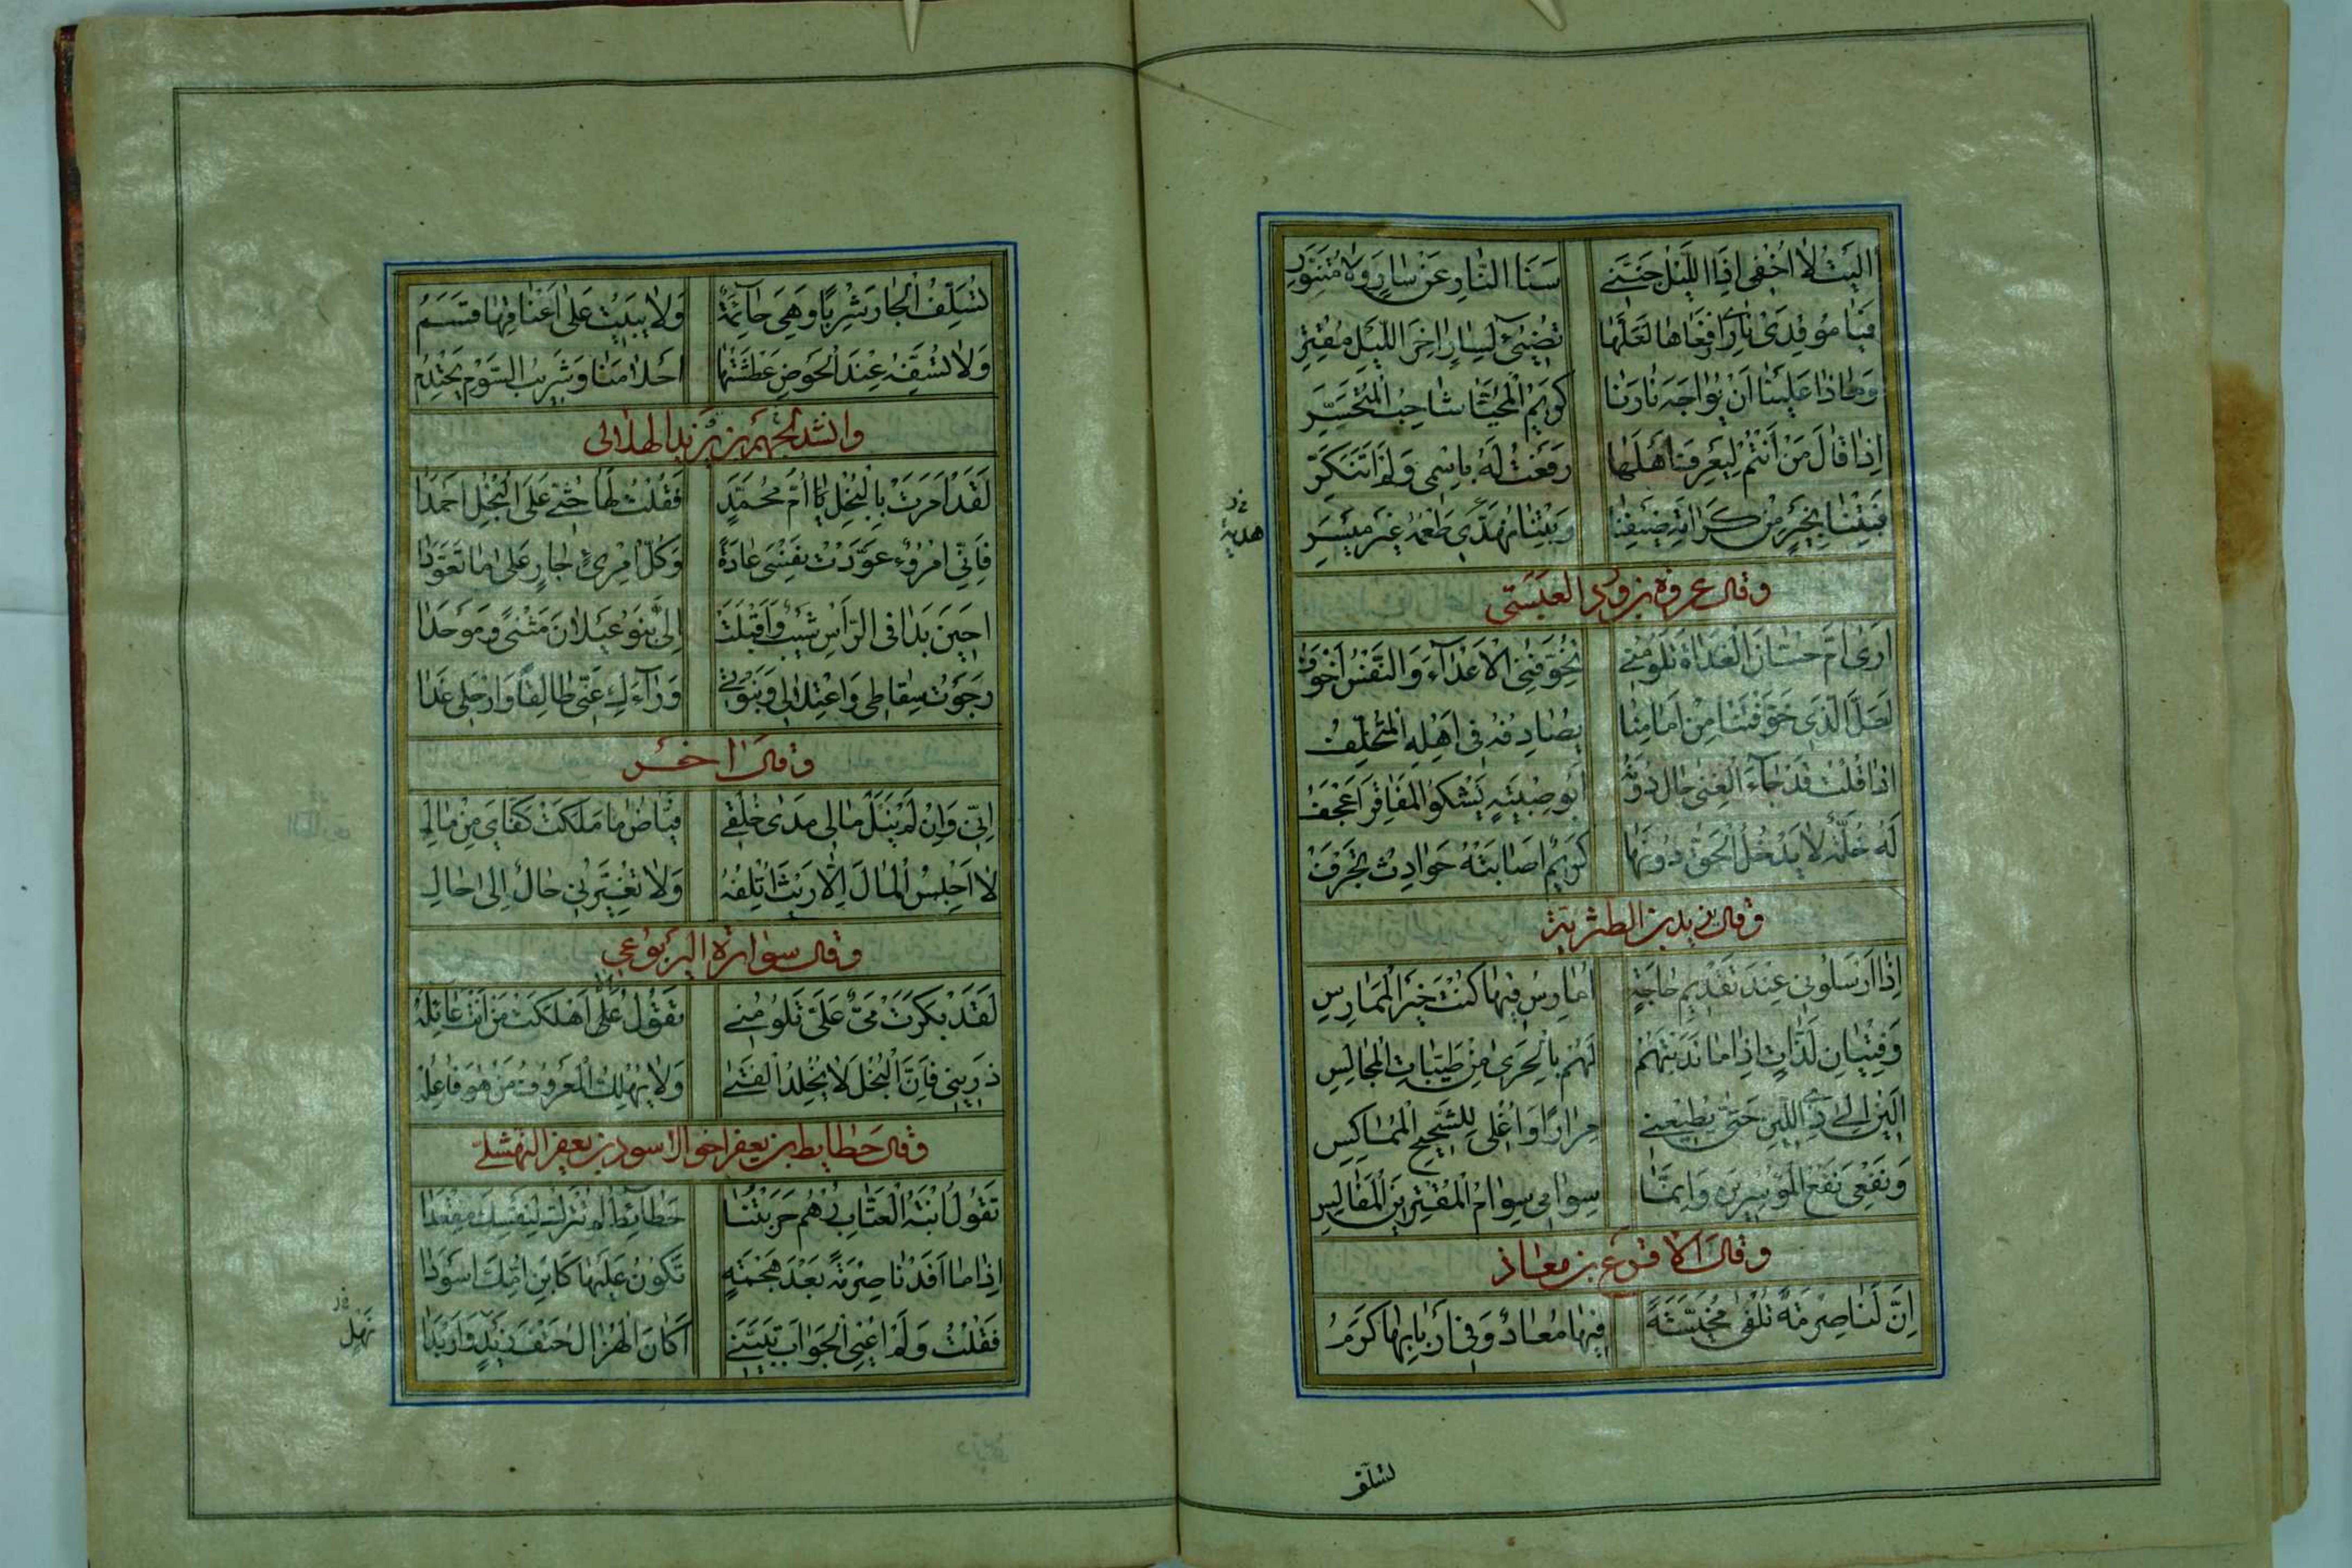 اٰلَیْتُ لٰا اُخْفِی اِذَا اللَّیْلُ جَنَّنِی سَنَا النّٰارِ عَنْ سٰارٍ وَلٰا مُتَنَوِّرِ
فَیٰا مُوقِدَیْ نٰارِی ارْفَعٰاهٰا لَعَلَّهٰا تُضِیْئُ لِسٰارٍ اٰخِرَ اللَّیْلِ مُقْتِرِ
وَمٰاذٰا عَلَیْنٰا اَنْ یُوٰاجِهَ نٰارَنٰا كَرِیْمُ الْمُحَیّٰا شٰاحِبُ الْمُتَحَسَّرِ
اِذٰا قٰالَ مَنْ اَنْتُمْ لِیَعْرِفَ اَهْلَهٰا رَفَعْتُ لَهُ بِاسْمِی وَلَمْ اَتَنَكَّرِ
فَبِتْنٰا بِخَیْرٍ مِنْ كَرٰامَةِ ضَیْفِنٰا وَبِتْنٰا نُهَدِّی طُعْمَةً غَیْرَ مَیْسَرِ
هدیة
وقال عروة بن ورد العبسی
اَرٰی اُمَّ حَسّٰانَ الْغَدٰاةَ تَلُوْمُنِی تُخَوِّفُنِی الْاَعْدٰآءَ وَالنَّفْسُ اَخْوَفُ
لَعَلَّ الَّذِی خَوَّفْتِنٰا مِنْ اَمٰامِنٰا یُصٰادِفُهُ فِی اَهْلِهِ الْمُتَخَلِّفُ
اِذٰا قُلْتُ قَدْ جٰآءَ الْغِنٰی حٰالَ دُوْنَهُ اَبُو صِبْیَةٍ یَشْكُو الْمَفٰاقِرَ اَعْجَفُ
لَهُ خُلَّةٌ لٰا یَدْخُلُ الْحَقُّ دُوْنَهٰا كَرِیْمٌ اَصٰابَتْهُ حَوٰادِثُ تَجْرُفُ
وقال یزید بن الطثریة
اِذٰا اَرْسَلُونِی عِنْدَ تَقْدِیْمِ حٰاجَةٍ اُمٰارِسُ فِیْهٰا كُنْتُ خَیْرَ الْمُمٰارِسِ
وَفِتْیٰانِ لَذّٰاتٍ اِذٰا مٰا نَدَبْتَهُمْ لَهُمْ بِالْحَرٰی مِنْ طَیِّبٰاتِ الْمَجٰالِسِ
اَلِیْنُ اِلٰی ذِی اللِّیْنِ حَتّٰی یُطِیْعَنِی مِرٰارًا وَاُغْلِی لِلشَّحِیْحِ الْمُمٰاكِسِ
وَنَفْعِی نَفْعُ الْمُوْسِرِیْنَ وَاِنَّمٰا سِوٰامِی سِوٰامُ الْمُقْتِرِیْنَ الْمَفٰالِیْسِ
وقال الاقرع بن معاذ
اِنَّ لَنٰا صِرْمَةً تُلْفٰی مُحَبَّسَةً فِیْهٰا مُعٰادٌ وَفِی اَرْبٰابِهٰا كَرَمُ
تسلّف
تُسَلِّفُ الْجٰارَ شِرْبًا وَهِیَ حٰآئِمَةٌ وَلٰا یَبِیْتُ عَلٰی اَعْنٰاقِهٰا قَسَمُ
وَلٰا تُسَفِّهُ عِنْدَ الْحَوْضِ عَطْشَتُهٰا اَحْلٰامَنٰا وَشَرِیْبُ السَّوْءِ یَحْتَدِمُ
وانشد لجهم بن یزید الهلالی
لَقَدْ اَمَرَتْ بِالْبُخْلِ یٰا اُمَّ مُحَمَّدٍ فَقُلْتُ لَهٰا حُثِّی عَلَی الْبُخْلِ اَحْمَدٰا
فَاِنِّی امْرُؤٌ عَوَّدْتُ نَفْسِیَ عٰادَةً وَكُلُّ امْرِئٍ جٰارٍ عَلٰی مٰا تَعَوَّدٰا
اَحِیْنَ بَدٰا فِی الرَّاْسِ شَیْبٌ وَاَقْبَلَتْ اِلَیَّ بَنُو عَیْلٰانَ مَثْنٰی وَمَوْحَدٰا
رَجَوْتِ سِقٰاطِی وَاعْتِدٰالِی وَنَبْوَتِی وَرٰآءَكِ عَنِّی طٰالِقًا وَارْحَلِی غَدٰا
وقال اخر
اِنِّی وَاِنْ لَمْ یَنَلْ مٰالِی مَدٰی خُلُقِی فَیّٰاضُ مٰا مَلَكَتْ كَفّٰایَ مِنْ مٰالِ
لٰا اَحْبِسُ الْمٰالَ اِلّٰا رَیْثَ اُتْلِفُهُ وَلٰا تُغَیِّرُنِی حٰالٌ اِلٰی حٰالِ
وقال سوارة الیربوعی
لَقَدْ بَكَرَتْ مَیٌّ عَلَیَّ تَلُوْمُنِی تَقُولُ اَلٰا اَهْلَكْتَ مَنْ اَنْتَ عٰائِلُهْ
ذَرِیْنِی فَاِنَّ الْبُخْلَ لٰا یُخْلِدُ الْفَتٰی وَلٰا یُهْلِكُ الْمَعْرُوفُ مَنْ هُوَ فٰاعِلُهْ
وقال حطایط بن یعفر اخو الاسود بن یعفر النهشلی
تَقُولُ ابْنَةُ الْعَتّٰابِ رُهْمُ حَرَبْتَنٰا حَطٰائِطُ لَمْ تَتْرُكْ لِنَفْسِكَ مَقْعَدٰا
اِذٰا مٰا اَفَدْنٰا صِرْمَةً بَعْدَ هَجْمَةٍ تَكُونُ عَلَیْهٰا كَابْنِ اُمِّكَ اَسْوَدٰا
فَقُلْتُ وَلَمْ اَعْیَ الْجَوٰابَ تَبَیَّنِی اَكٰانَ الْهُزٰالُ حَتْفَ زَیْدٍ وَاَرْبَدٰا